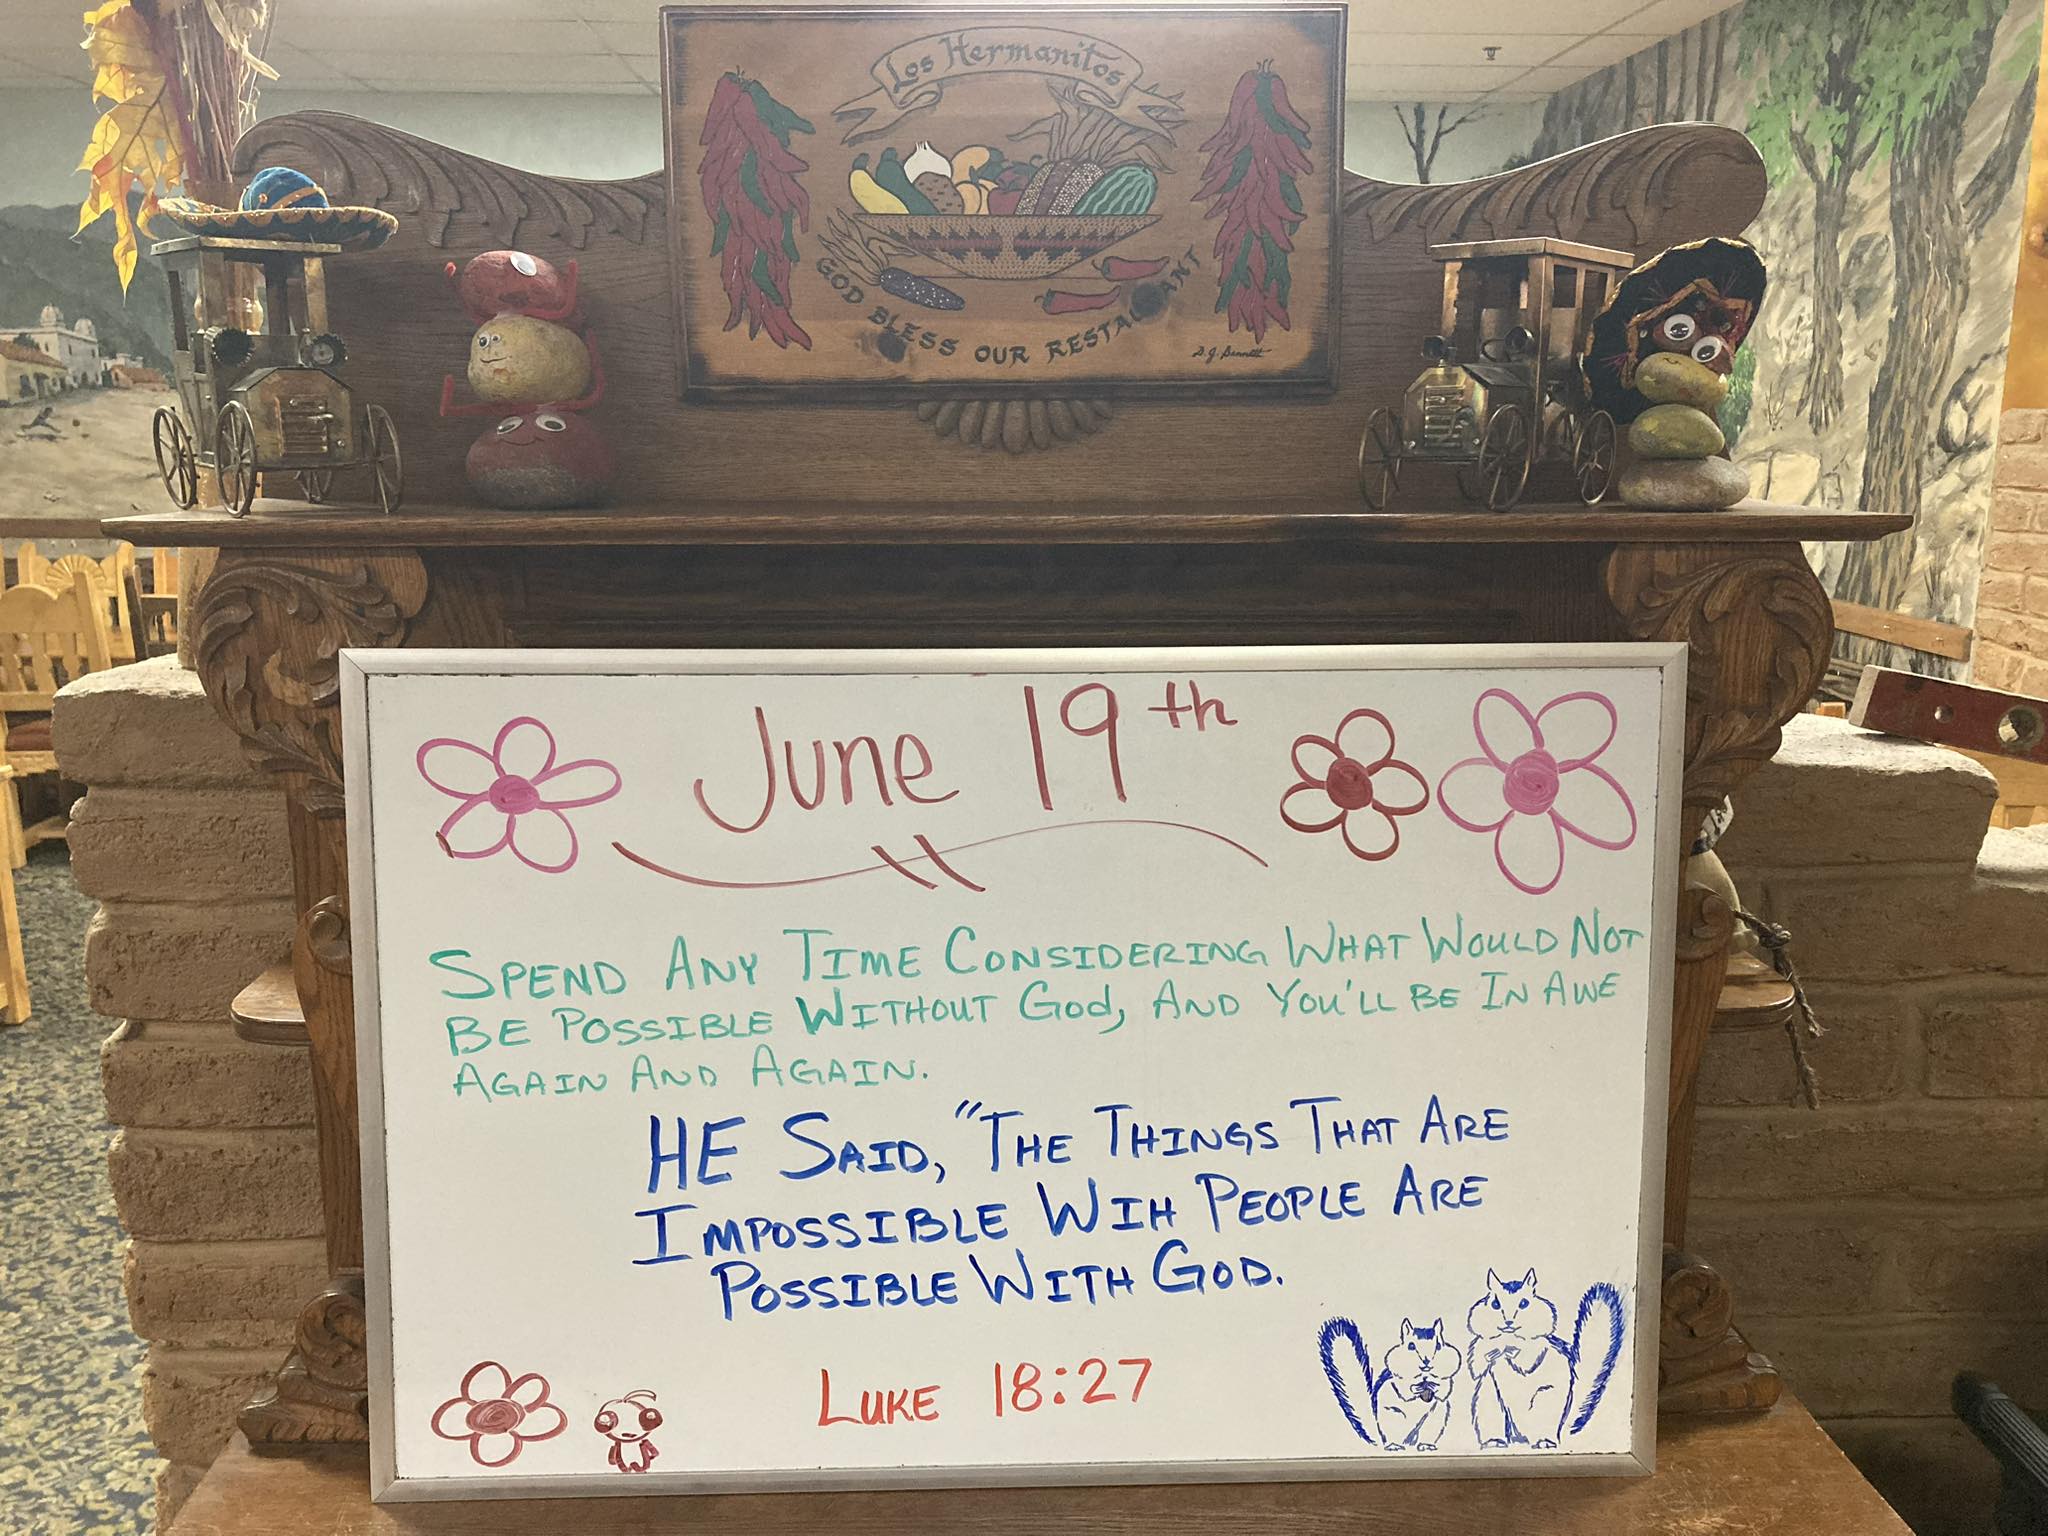 Los Hermanitos
GOD BLESS OUR RESTAURANT
D.J. Bennett
June 19th
SPEND ANY TIME CONSIDERING WHAT WOULD NOT
BE POSSIBLE WITHOUT God, AND YOU'LL BE IN AWE
AGAIN AND AGAIN.
HE SAID, "THE THINGS THAT ARE
IMPOSSIBLE WIH PEOPLE ARE
POSSIBLE WITH GOD.
LUKE 18:27